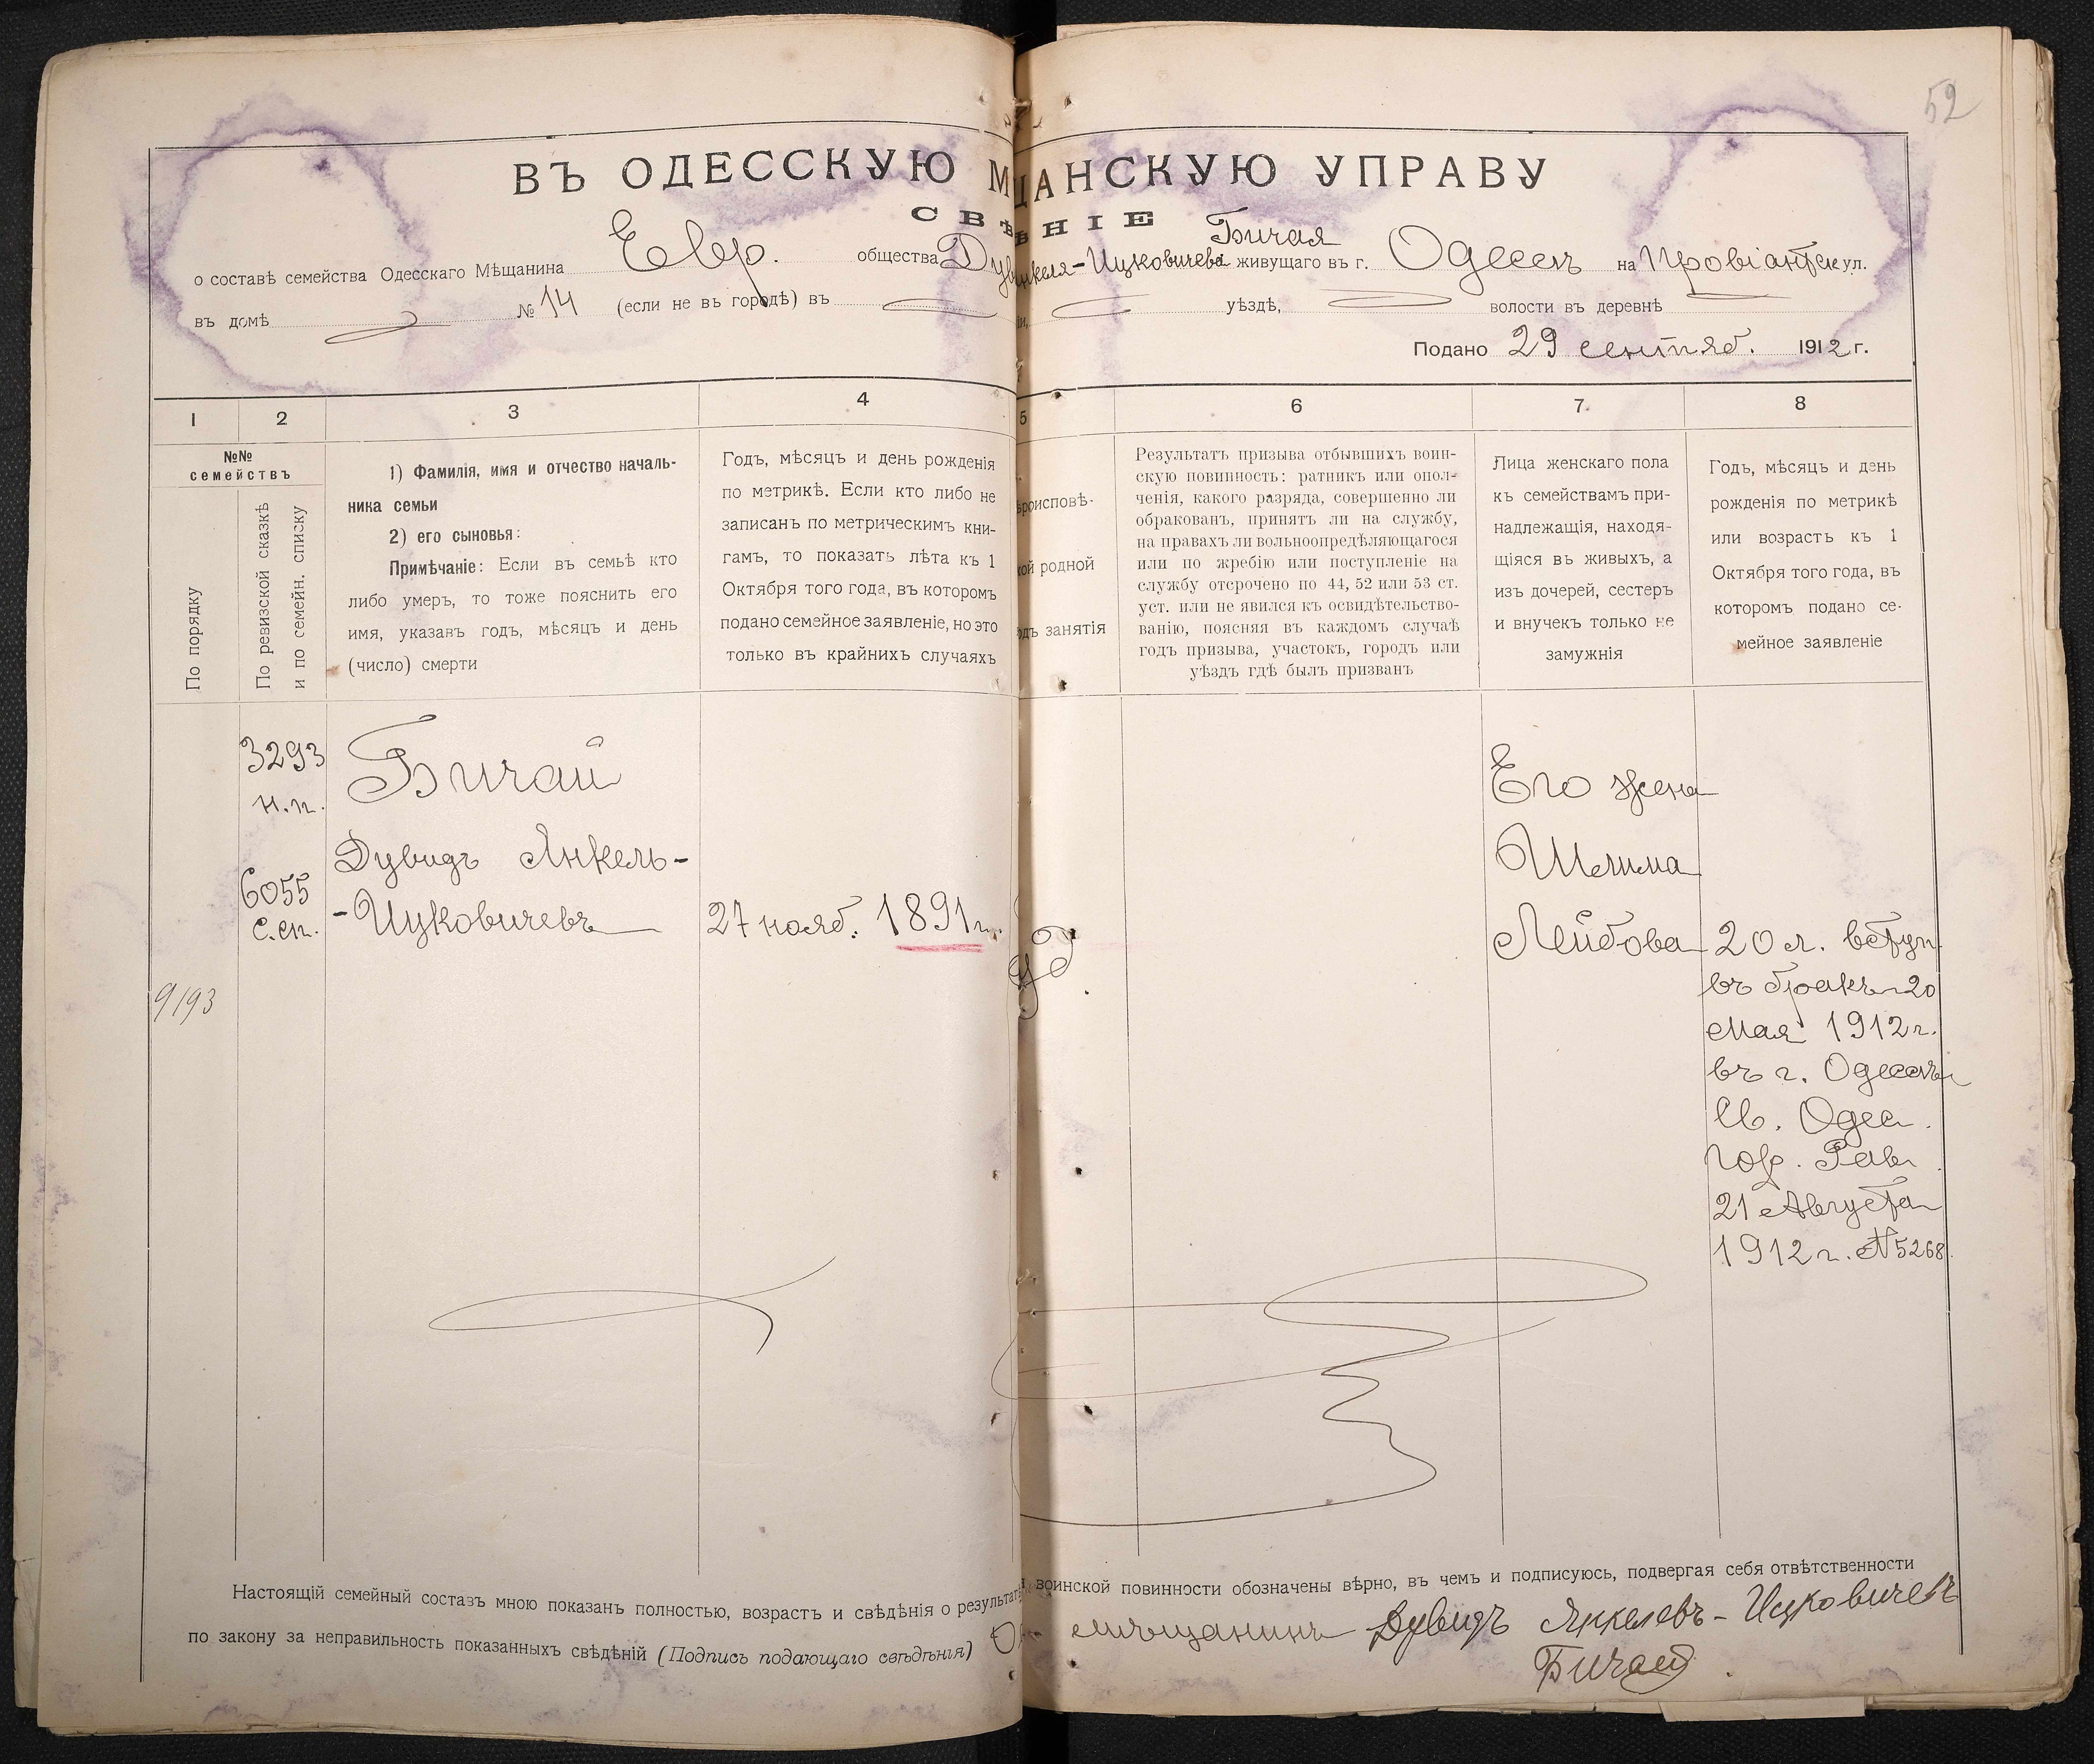 52
ВЪ ОДЕССКУЮ М ЩАНСКУЮ УПРАВУ
СВѢ ѢНІЕ
Бичая
о составѣ семейства Одесскаго Мѣщанина Евр. общества Дув нкеля-Ицковичева живущаго въ г. Одессѣ на Провіантск ул.
въ домѣ № 14 (если не въ городѣ) въ уѣздѣ, волости въ деревнѣ
Подано 29 сентяб. 1912 г.
1 2 3 4 5 6 7. 8
№№ семействъ
По порядку
По ревизской сказкѣ
и по семейн. списку
1) Фамилія, имя и отчество началь-
ника семьи
2) его сыновья:
Примѣчаніе: Если въ семьѣ кто
либо умеръ, то тоже пояснить его
имя, указавъ годъ, мѣсяцъ и день
(число) смерти
Годъ, мѣсяцъ и день рожденія
по метрикѣ. Если кто либо не
записанъ по метрическимъ кни-
гамъ, то показать лѣта къ 1
Октября того года, въ которомъ
подано семейное заявленіе, но это
только въ крайнихъ случаяхъ
роисповѣ-
кой родной
одъ занятія
Результатъ призыва отбывшихъ воин-
скую повинность: ратникъ или опол-
ченія, какого разряда, совершенно ли
обракованъ, принятъ ли на службу,
на правахъ ли вольноопредѣляющагося
или по жребію или поступленіе на
службу отсрочено по 44, 52 или 53 ст.
уст. или не явился къ освидѣтельство-
ванію, поясняя въ каждомъ случаѣ
годъ призыва, участокъ, городъ или
уѣздъ гдѣ былъ призванъ
Лица женскаго пола
къ семействамъ при-
надлежащія, находя-
щіяся въ живыхъ, а
изъ дочерей, сестеръ
и внучекъ только не
замужнія
Годъ, мѣсяцъ и день
рожденія по метрикѣ
или возрастъ къ 1
Октября того года, въ
которомъ подано се-
мейное заявленіе
9193
3293
н.п.
6055
с.сп.
Бичай
Дувидъ Янкель-
-Ицковичевъ
27 нояб. 1891 г.
Его жена
Шелима
Лейбова
20 л. вступ.
въ бракъ 20
мая 1912 г.
въ г. Одессѣ
Св. Одес.
гор. Рав.
21 Августа
1912 г. № 5268.
Настоящій семейный составъ мною показанъ полностью, возрастъ и свѣдѣнія о результат воинской повинности обозначены вѣрно, въ чемъ и подписуюсь, подвергая себя отвѣтственности
по закону за неправильность показанныхъ свѣдѣній (Подпись подающаго свѣдѣнія) мѣщанинъ Дувидъ Янкелевъ-Ицковичевъ
Бичай.